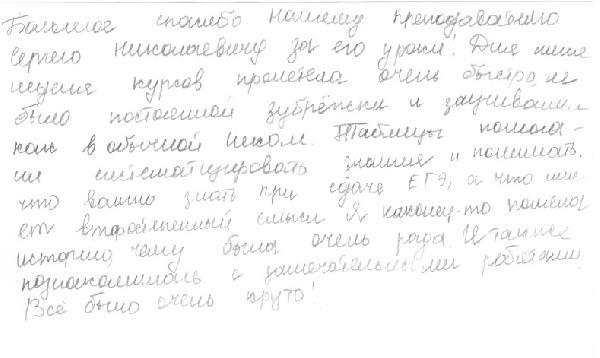 Большое спасибо нашему преподавателю
Сергею Николаевичу за его уроки! Для меня
неделя курсов пролетела очень быстро, не
было постоянной зубрёжки и заучивания
как в обычной школе. Таблицы помога-
ли систематизировать знания и понимать,
что важно знать при сдаче ЕГЭ, а что име-
ет второстепенный смысл. Я наконец-то поняла
историю, чему была очень рада. И также
познакомилась с замечательными ребятами.
Всё было очень круто!